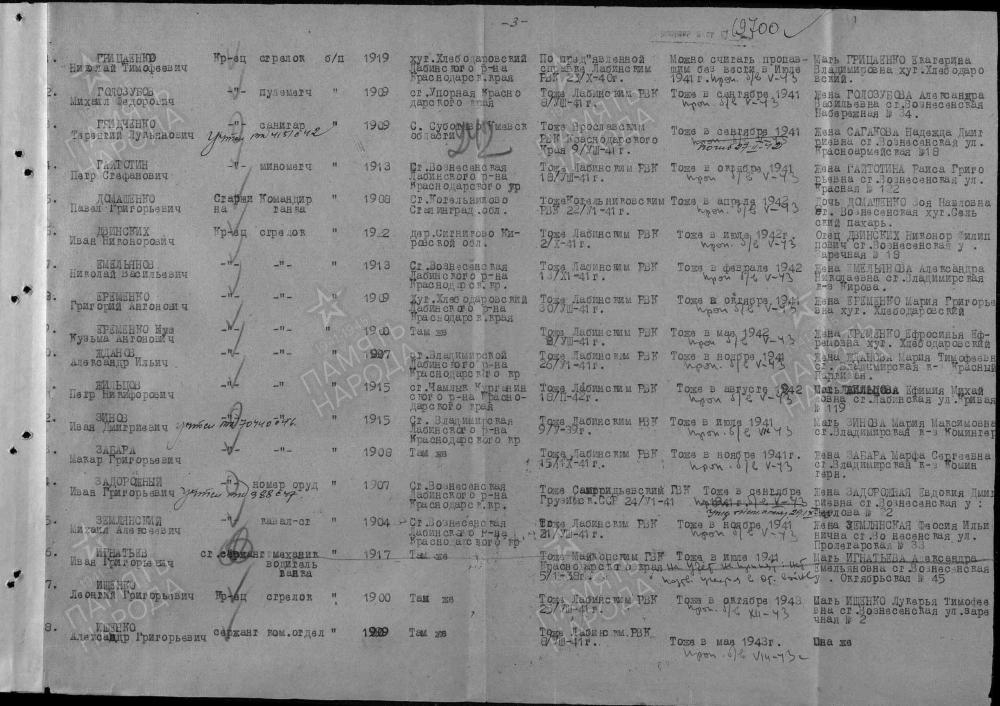 -3-
12700
ГРИЦАЕНКО Кр-ец стрелок б/п 1919 хут.Хлебодаровский По пред"явленной Можно считать пропав- Мать ГРИЦАЕНКО Екатерина
Николай Тимофеевич Лабинского р-на справке Лабинским шим без вести в Июле Владимировна хут.Хлебодаро
Краснодарск.края РВК 23/X-40г. 1941г. проп. б/в V-43 вский.
2. ГОЛОЗУБОВ -"- пулеметч " 1909 ст.Упорная Красно Тоже Лабинским РВК Тоже в сентябре 1941 Жена ГОЛОЗУБОВА Александра
Михаил Федорович дарского края 8/VIII-41г. проп. б/в V-43 Васильевна ст.Вознесенская
Набережная № 34.
-"- санитар " 1909 С. Тоже Ярославским Тоже в сентябре 1941 Жена САГАКОВА Надежда Дмит
Терентий Лукьянович области РВК Краснодарского риевна ст.Вознесенская ул.
края 9/VIII-41г. Красноармейская №18
4. ГАЙТОТИН -"- минометч " 1913 Ст.Вознесенская Тоже Лабинским РВК Тоже в октябре 1941 Жена ГАЙТОТИНА Раиса Григо
Петр Стефанович Лабинского р-на 18/VIII-41г. проп. б/в V-43 рьевна ст.Вознесенская ул.
Краснодарского Красная № 122
5. ДОМАШЕНКО Старши Командир " 1908 Ст.Котельниково ТожеКотельниковским Тоже в апреле 1942 Дочь ДОМАШЕНКО Зоя Павловна
Павел Григорьевич на танка Сталинград.обл. РВК 22/VI-41г. проп. б/в V-43 ст. Вознесенская хут.Сель
ский пахарь.
ДВИНСКИХ Кр-ец стрелок " 1922 дер.Ситниково Ки- Тоже Лабинским РВК Тоже в июле 1942г. Отец ДВИНСКИХ Никонор Филип
Иван Никонорович ровской обл. 2/X-41г. проп. б/в V-43 пович ст.Вознесенская у .
Заречная № 18
7. ЕМЕЛЬЯНОВ -"- -"- " 1913 Ст.Вознесенская Тоже Лабинским РВК Тоже в феврале 1942 Жена ЕМЕЛЬЯНОВА Александра
Николай Васильевич Лабинского р-на 13/XI-41г. проп. б/в V-43 Николаевна ст.Владимирская
Краснодарск.кр. к-з Кирова.
ЕРЕМЕНКО -"- -"- " 1909 Хут.Хлебодаровский Тоже Лабинским РВК Тоже в октябре 1941 Жена ЕРЕМЕНКО Мария Григорье
Григорий Антонович Лабинского р-на 30/VIII-41г. проп. б/в V-43 вна хут. Хлебодаровский
Краснодарск.края
ЕРЕМЕНКО -"- -"- " 1900 Там же Тоже Лабинским РВК Тоже в мае 1942 Жена ЕРЕМЕНКО Ефросинья Еф-
Кузьма Антонович /VIII-41г. проп. б/в V-43 ремовна хут. Хлебодаровский
0. ЖДАНОВ -"- -"- " 1907 ст.Владимирской Тоже Лабинским РВК Тоже в ноябре 1941 Жена ЖДАНОВА Мария Тимофеевн
Александр Ильич Лабинского р-на 26/VI-41г. проп. б/в V-43 ст. Владимирская к- Красный
Краснодарского кр Партизан.
ЖИЛЬЦОВ -"- -"- " 1915 ст.Чамлык Курганин Тоже Лабинским РВК Тоже в августе 1942 Мать ЖИЛЬЦОВА Ефимия Михай
Петр Никифорович ского р-на Красно- 18/II-42г. проп б/в V-43 ловна ст.Лабинская ул.Кривая
дарского край № 119
2. ЗИНОВ -"- -"- " 1915 Ст. Владимирская Тоже Лабинским РВК Тоже в июне 1941 Мать ЗИНОВА Мария Максимовна
Иван Дмитриевич Лабинского р-на 9/V-39г. проп. б/в -43 ст.Владимирская к-з Коминтер
Краснодарского кр
3. ЗАБАРА -"- -"- " 1908 Там же Тоже Лабинским РВК Тоже в ноябре 1941г. Жена ЗАБАРА Марфа Сергеевна
Макар Григорьевич 15/IX-41г. проп. б/в V-43 ст.Владимирская к-з Комин
терн.
4. ЗАДОРОЖНЫЙ -"- номер оруд " 1907 Ст.Вознесенская Тоже РВК Тоже в сентябре Жена ЗАДОРОЖНАЯ Евдокия Дмит
Иван Григорьевич Лабинского р-на Грузинск.ССР 24/VI-41 1941г. б/в V-43 риевна ст.Вознесенская у :
Краснодарск.кр.
5. ЗЕМЛЯНСКИЙ -"- кавал-ст " 1904 Ст.Вознесенская Тоже Лабинским РВК Тоже в ноябре 1941 Жена ЗЕМЛЯНСКАЯ Феосия Ильи
Михаил Алексеевич Лабинского р-на 21/VIII-41г. проп. б/в V-43 нична ст.Во несенская ул.
Краснодарского кр Пролетарская № 33
6. ИГНАТЬЕВ ст.сержант механик " 1917 Там же Тоже Майкопским РВК Тоже в июле 1941 Мать ИГНАТЬЕВА Александра
Иван Григорьевич водитель Краснодарского края Емельяновна ст.Вознесенская
танка 5/1-39г. у . Октябрьская № 45
7. ИЩЕНКО
Леонтий Григорьевич Кр-ец стрелок " 1900 Там же Тоже Лабинским РВК Тоже в октябре 1943 Мать ИЩЕНКО Лукерья Тимофее
23/VIII-41г. проп. б/в XII-43 вна ст.Вознесенская ул.заре
чная № 2
8. ИЩЕНКО
Александр Григорьевич сержант ком.отдел " 1909 Там же Тоже Лабинским.РВК Тоже в мае 1943г. Она же
8/VIII-41г. проп. б/в VIII-43г
ПАМЯТЬ НАРОДА